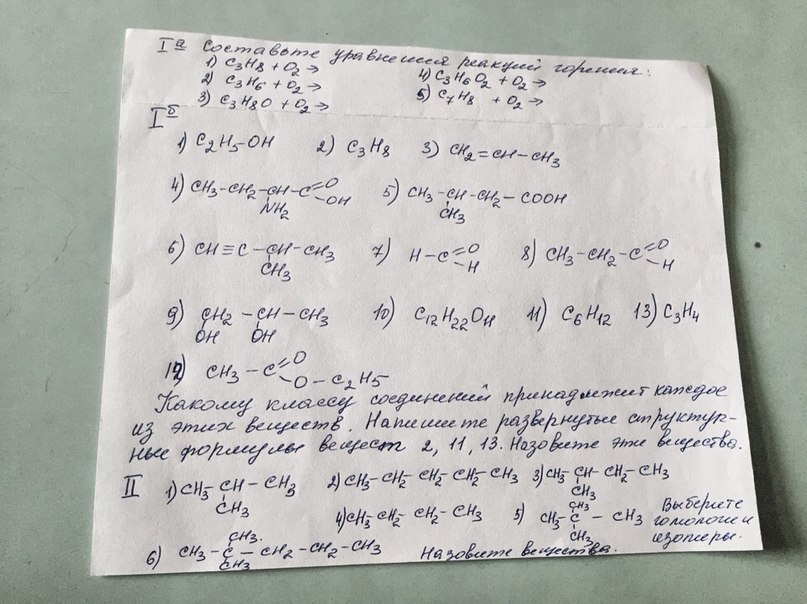 Iа Составьте уравнения реакций горения:
1) C3H8 + O2 → 4) C3H6O2 + O2 →
2) C3H6 + O2 → 5) C7H8 + O2 →
3) C3H8O + O2 →
Iб
1) C2H5-OH 2) C3H8 3) CH2=CH-CH3
4) CH3-CH2-CH-C=O -OH 5) CH3-CH-CH2-COOH
NH2 CH3
6) CH≡C-CH-CH3 7) H-C=O -H 8) CH3-CH2-C=O -H
CH3
9) CH2-CH-CH3 10) C12H22O11 11) C6H12 13) C3H4
OH OH
12) CH3-C=O -O-C2H5
Какому классу соединений принадлежит каждое
из этих веществ. Напишите развернутые структур-
ные формулы веществ 2, 11, 13. Назовите эти вещества.
II 1) CH3-CH-CH3 2) CH3-CH2-CH2-CH2-CH3 3) CH3-CH-CH2-CH3
CH3 CH3
4) CH3-CH2-CH2-CH3 5) CH3-C-CH3 Выберите
CH3 CH3 гомологи и
изомеры.
6) CH3-C-CH2-CH2-CH3 Назовите вещества.
CH3 CH3